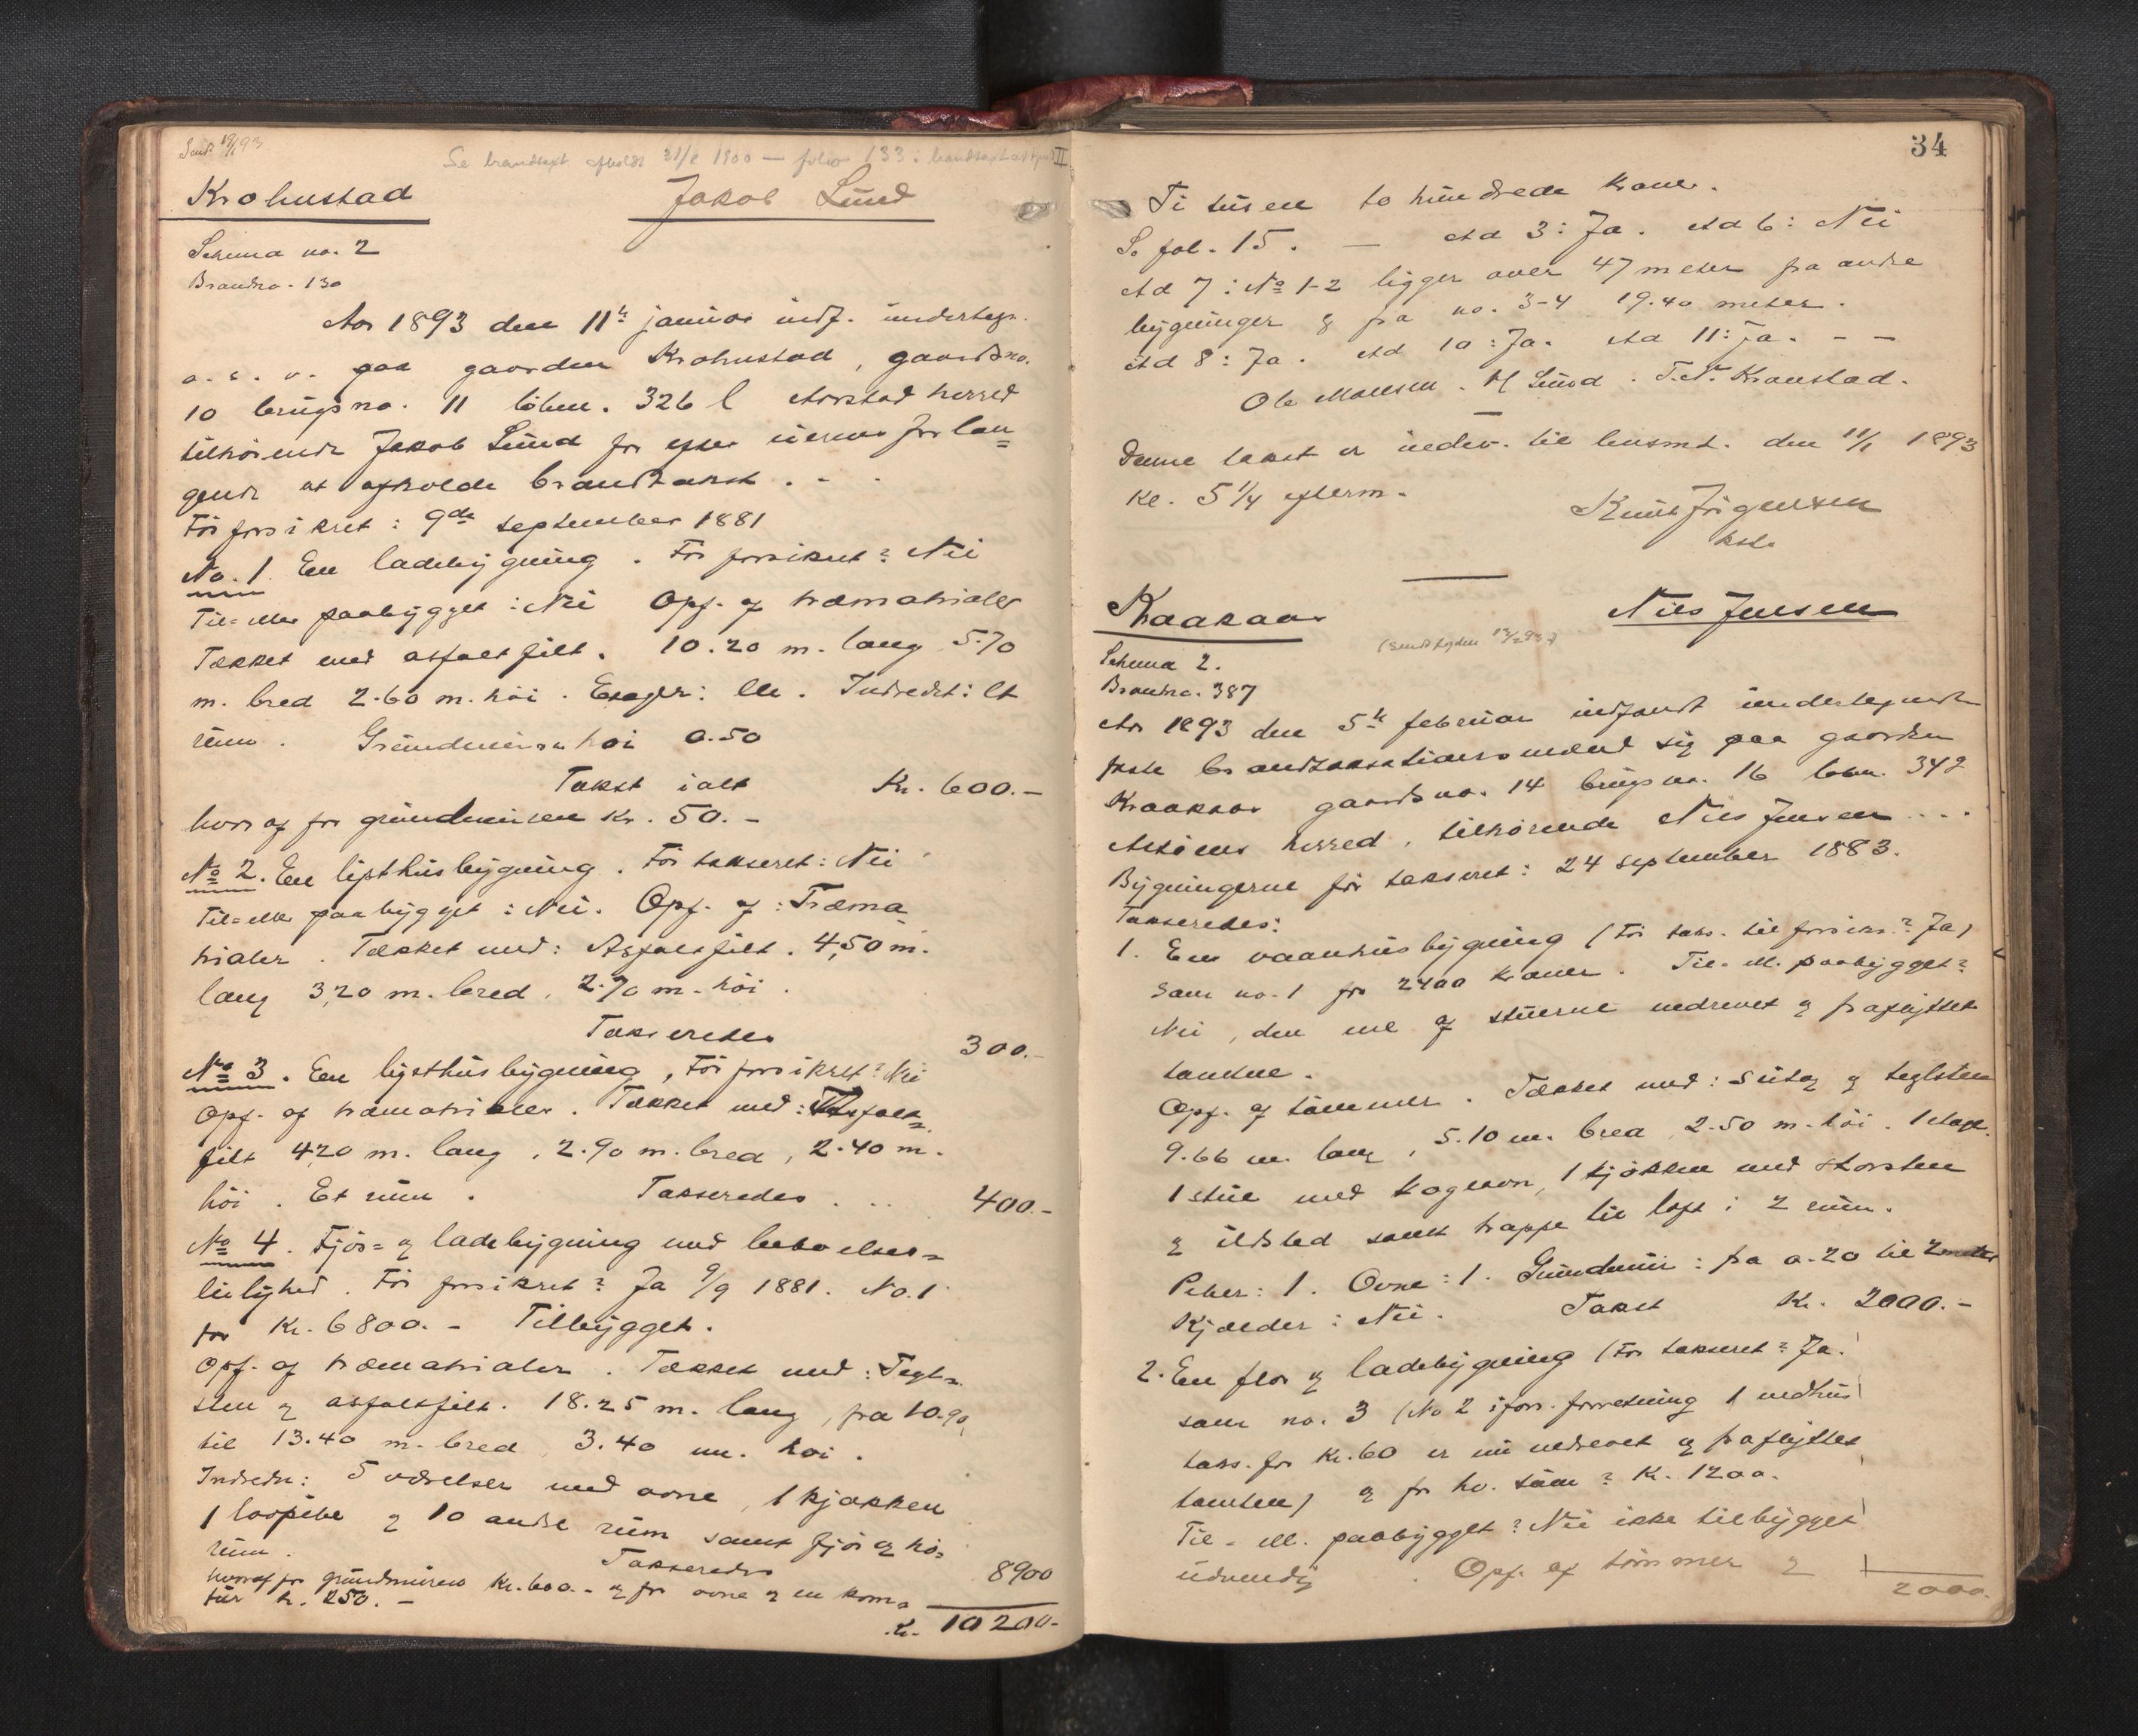 Sendt 19/1 93
Se brandtaxt afholdt 21/2 1900 — folio 133 i brandtaxtast II
Krohnstad Jakob Lund
Schema no. 2
Brandno. 130
Aar 1893 den 11te januar indf. undertegn.
o. s. v. paa gaarden Krohnstad, gaardsno.
10 brugsno. 11 löben. 326 l Aarstad herred
tilhörende Jakob Lund for efter dennes forlan=
gende at afholde brandtakst . - .
För forsikret : 9de september 1881
No. 1. En ladebygning . För forsikret? Nei
Til= eller paabygget : Nei Opf. af træmatrialer
Tækket med asfaltfilt . 10.20 m. lang 5.70
m. bred 2.60 m. höi . Etager : en . Indredet : et
rum . Grundmuren höi 0.50
Takst ialt Kr. 600.-
hvoraf for grundmuren Kr. 50.-
No 2. En lysthusbygning . För takseret : Nei
Til= eller paabygget : Nei. Opf. af : Træma
trialer . Tækket med : Asfaltfilt . 4,50 m.
lang 3,20 m. bred , 2.70 m. höi .
Takseredes 300.-
No 3. En lysthusbygning , För forsikret? Nei
Opf. af træmatrialer . Tækket med : Asfalt=
filt 4.20 m. lang , 2.90 m. bred , 2.40 m.
höi . Et rum . Takseredes . . . 400.-
No 4. Fjös= og ladebygning med beboelses=
leilighed . För forsikret? Ja 9/9 1881. No. 1
for Kr. 6800.- Tilbygget .
Opf. af træmatrialer . Tækket med : Tegl=
sten og asfaltfilt . 18.25 m. lang , fra 10.90
til 13.40 m. bred 3.40 m. höi .
Indredn : 5 værelser med ovne , 1 kjøkken
1 og 10 andre rum samt fjös og hö=
rum . Takseredes 8900
hvoraf for grundmuren Kr. 600.- og for ovne og en kom=
für Kr. 250.-
Kr. 10200.-
34
Ti tusen to hundrede kroner .
Se fol. 15. — Ad 3 : Ja . Ad 6 : Nei
Ad 7 : No 1-2 ligger over 47 meter fra andre
bygninger og fra no. 3-4 19.40 meter .
Ad 8 : Ja . Ad 10 : Ja . Ad 11 : Ja . - -
Ole Monsen . M Lund . T. N. Kronstad .
Denne takst er indlev. til lensmt. den 11/1 1893
Kl. 5 1/4 efterm .
Knut Jörgensen
kst.
Kraakaas Nils Jensen
(sendt 13/2 93)
Schema 2.
Brandno. 387
Aar 1893 den 5te februar indfandt undertegnede
faste brandtaksationsmænd sig paa gaarden
Kraakaas gaardsno. 14 brugsno. 16 löbn. 342
Askøens herred , tilhörende Nils Jensen . . . .
Bygningerne för takseret : 24 september 1883.
Takseredes :
1. En vaanhusbygning (för taks. til forsikr.? Ja)
som no. 1 for 2400 kroner . Til- ell. paabygget?
Nei , den ene af stuerne nedrevet og fraflyttet
tomten .
Opf. af tömmer . Tækket med : sutag og teglsten
9.66 m. lang , 5.10 m. bred 2.50 m. höi . 1 etage.
1 stue med kogeovn , 1 kjökken med skorsten
og ildsted samt trappe til loft i 2 rum .
Peber : 1. Ovne : 1. Grundmur : fra 0.20 til 2 meter
Kjælder : Nei . Takst Kr. 2000.-
2. En flor og ladebygning (för takseret? Ja .
som no. 3 (No 2 i forr. forretning 1 vedhus
taks. for Kr. 60 er nu nedrevet og fraflyttet
tomten) og for hv. sum? Kr. 1200.
Til- ell. paabygget? Nei ikke tilbygget
udvendig . Opf. af tömmer og
2000.